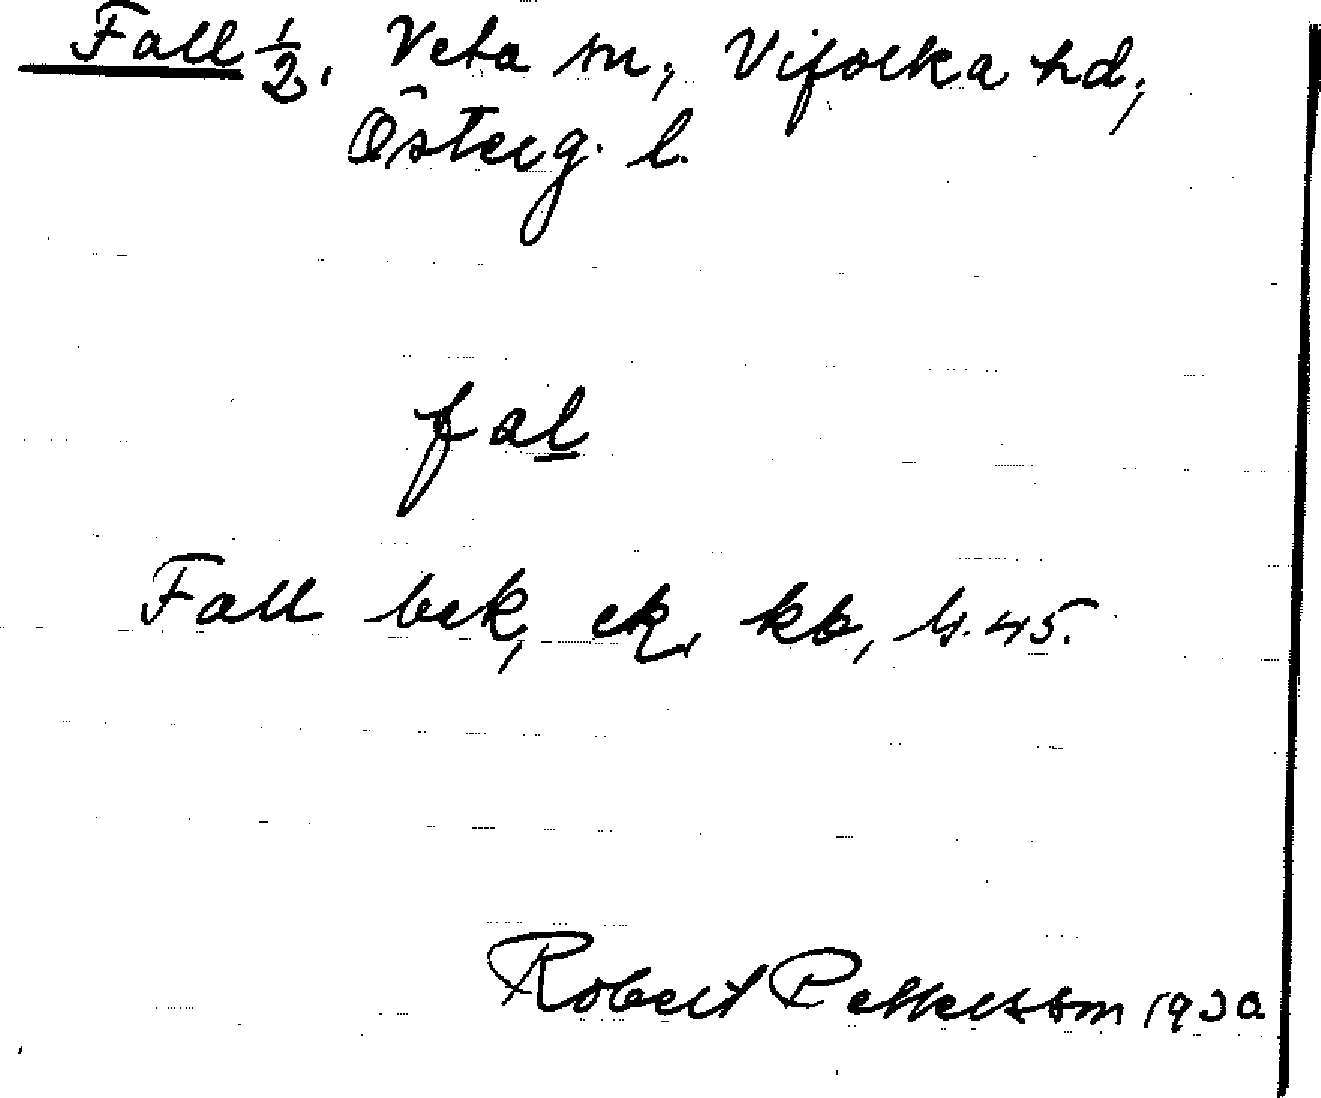 Fall 1/2. Veta sn, Vifolka hd,
Österg. l.
fal
Fall bek, ek, kb, G.45.
Robert Pettersson 1930